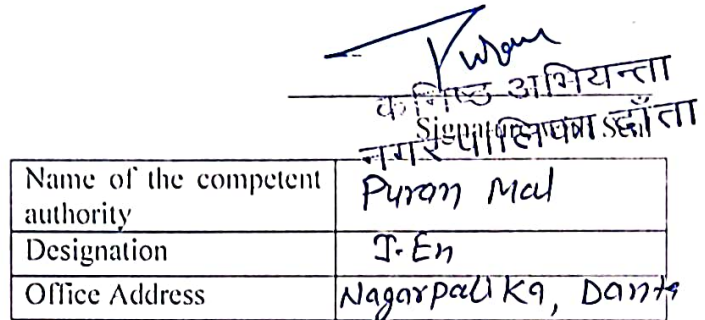 Puran
कनिष्ठ अभियन्ता
नगर पालिका दाँता
Name of the competent authority Puran Mal
Designation J.En
Office Address Nagarpalika, Danta